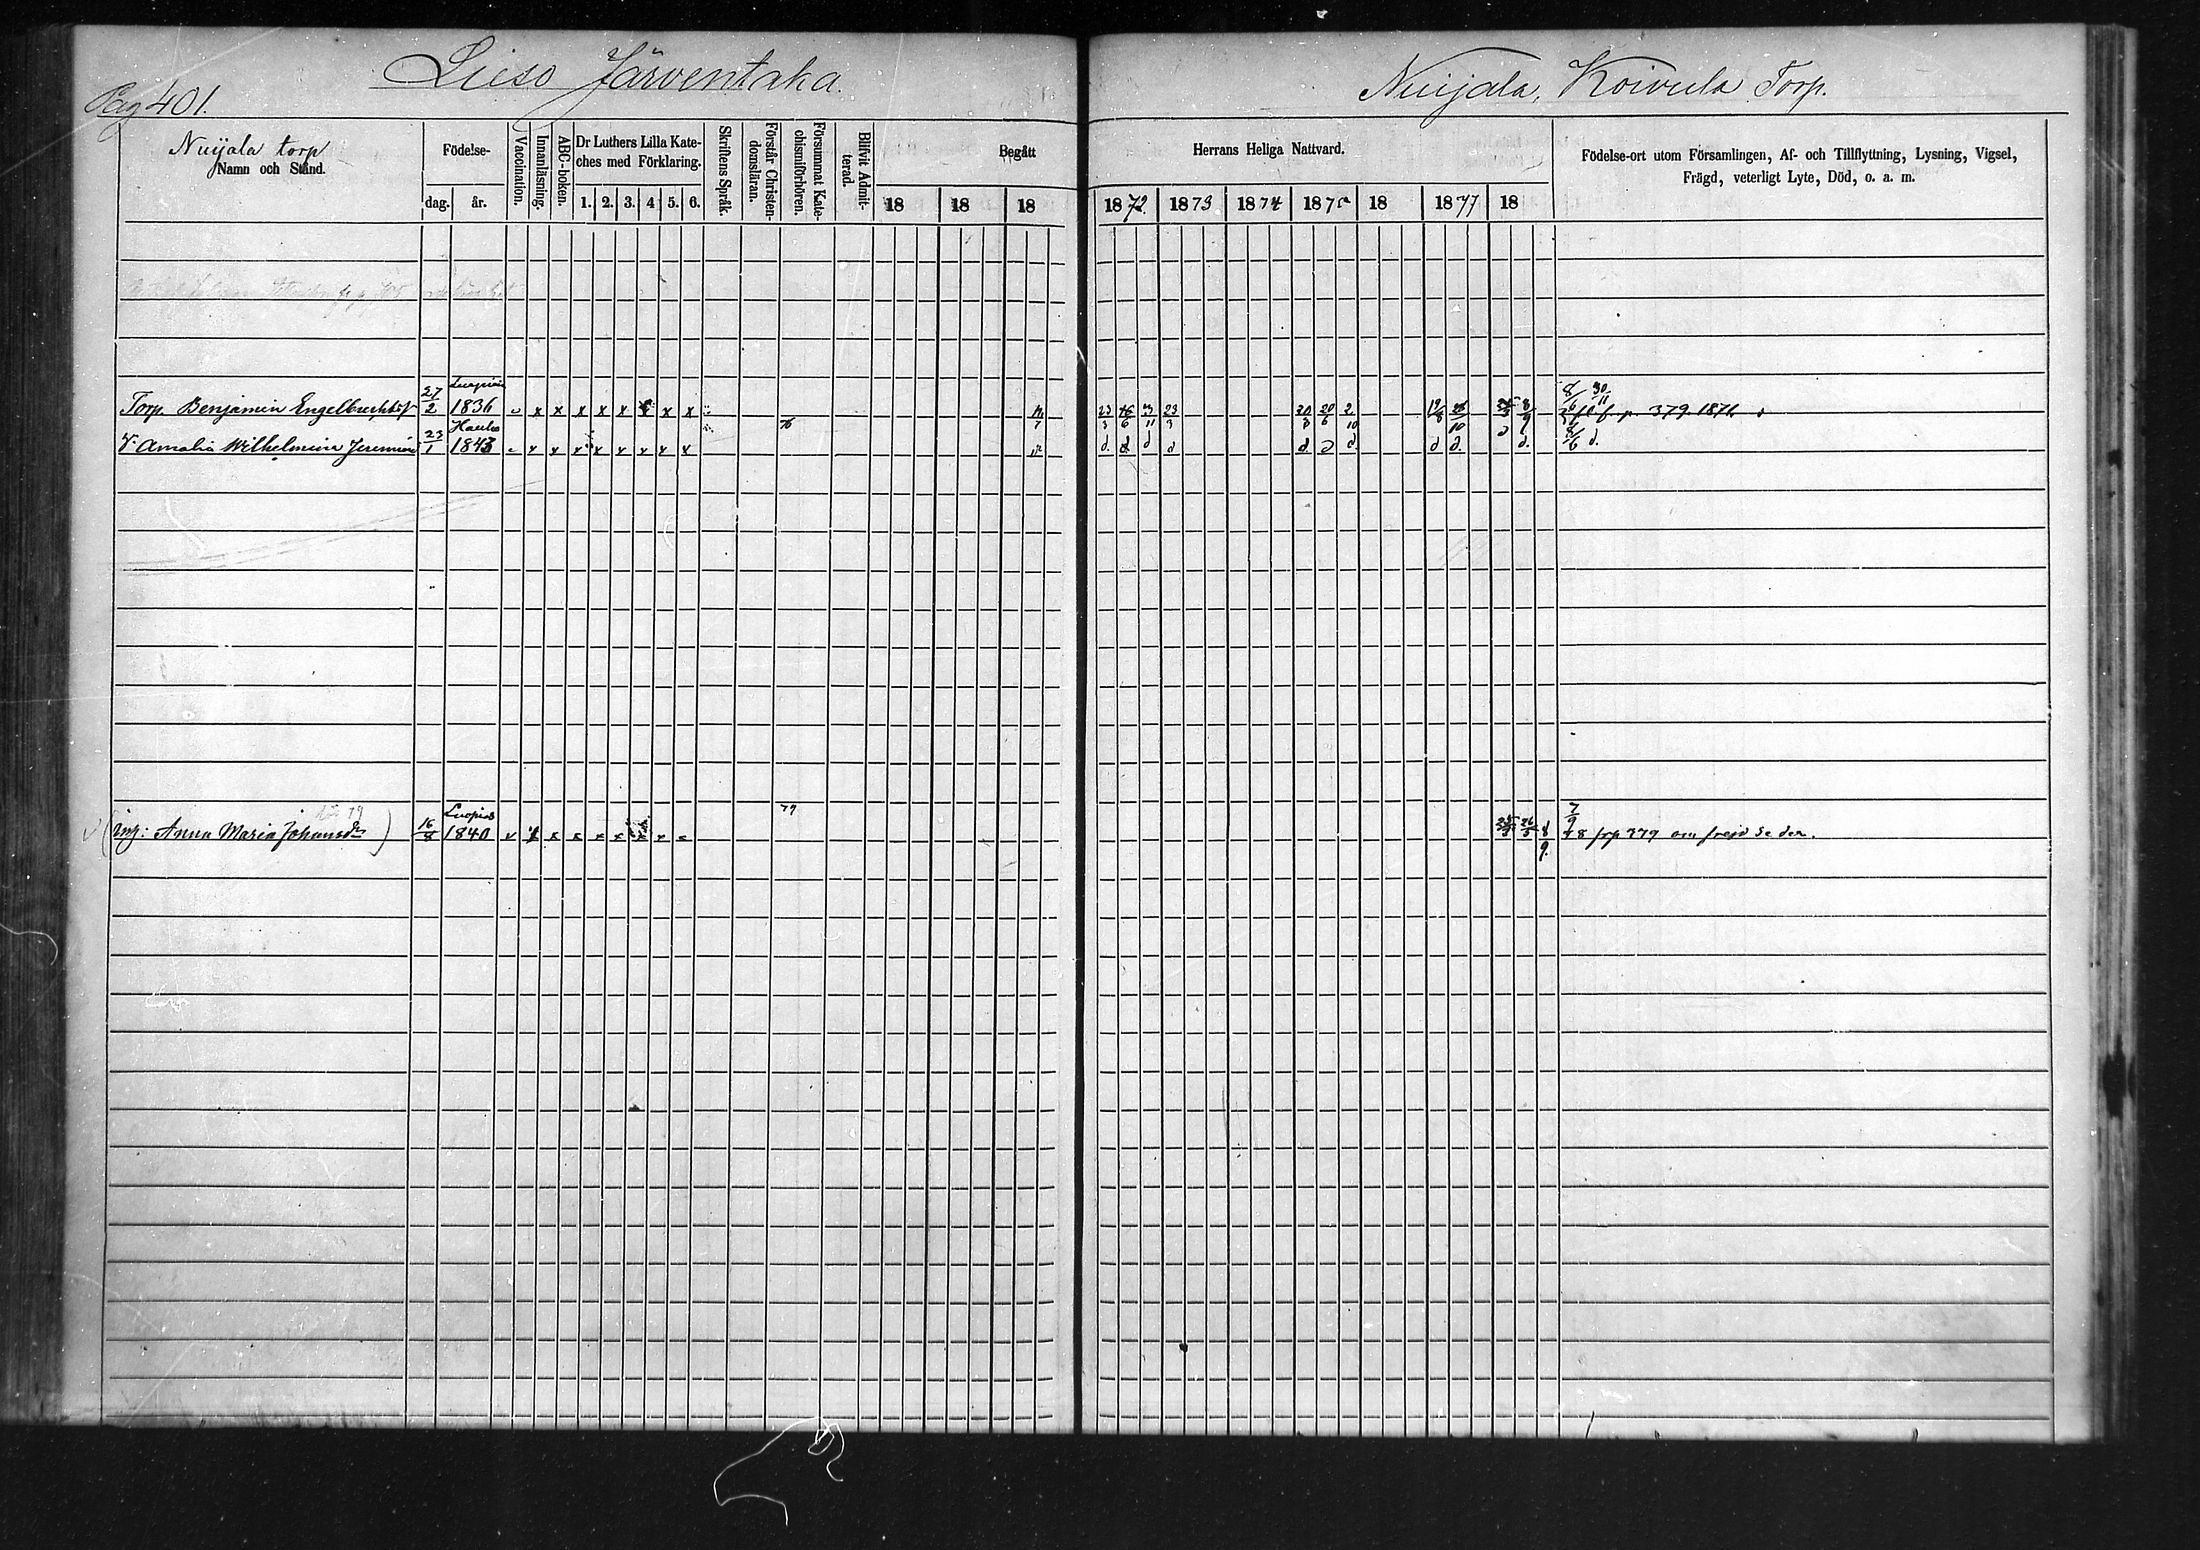 Pag 401.
Lieso Järventaka.
Nuijala, Koivula Torp.
Nuijala torp
Namn och Stånd.
Födelse-
dag. år.
Vaccination.
Innanläsning.
ABC-boken.
Dr Luthers Lilla Kate-
ches med Förklaring.
1. 2. 3. 4 5. 6.
Skriftens Språk.
Förstår Christen-
domsläran.
Försummat Kate-
chismiförhören.
Blifvit Admit-
terad.
Begått
18 18 18
Herrans Heliga Nattvard.
1872. 1873 1874 1875 18 1877 18
Födelse-ort utom Församlingen, Af- och Tillflyttning, Lysning, Vigsel,
Frägd, veterligt Lyte, Död, o. a. m.
Torp. Benjamin Engelbrechtss 27/2 1836 x x x x x x x 23/3 23/3 20/3 20/6 2/10 19/8 8/9 f. p. 379 1871
Hauho
V: Amalia Wilhelmina 23/1 1843 x x x x x x x x 76 d. d d d d d d. d d. d d. 8/6 d.
79
Luopiois
Inh: Anna Maria Johansdr 16/8 1840 v x x x x x x x 26/5 8/9. 7/9 78 frp 379 om frejd se der.